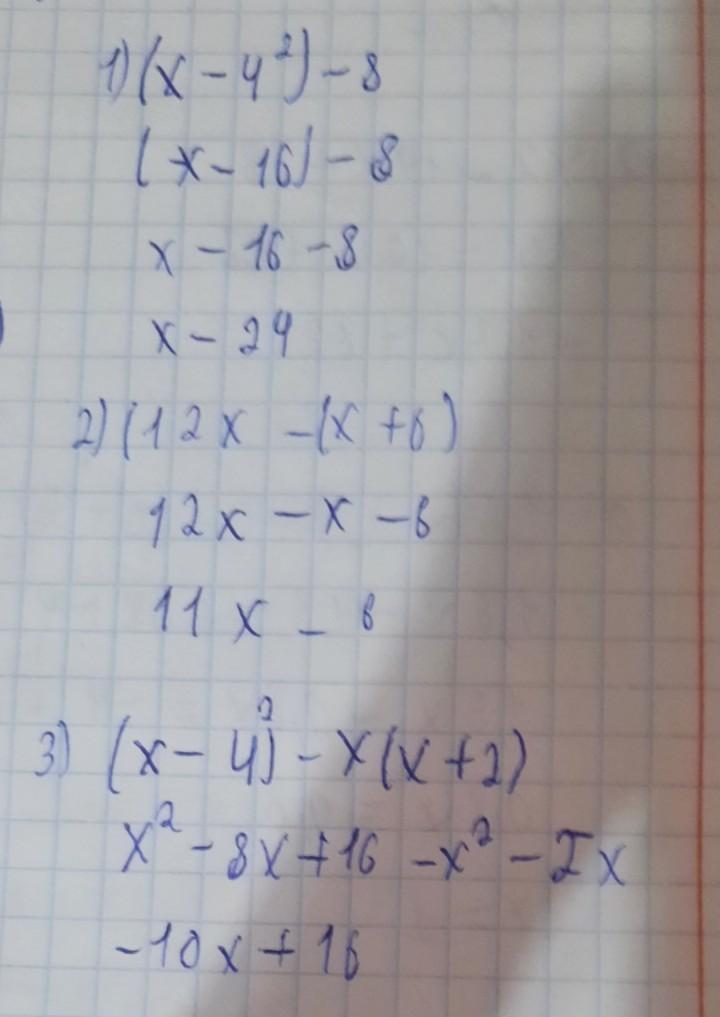 1) (x - 4²) - 8
(x - 16) - 8
x - 16 - 8
x - 24
2) (12x - (x + 6)
12x - x - 6
11x - 6
3) (x - 4)² - x(x + 2)
x² - 8x + 16 - x² - 2x
-10x + 16